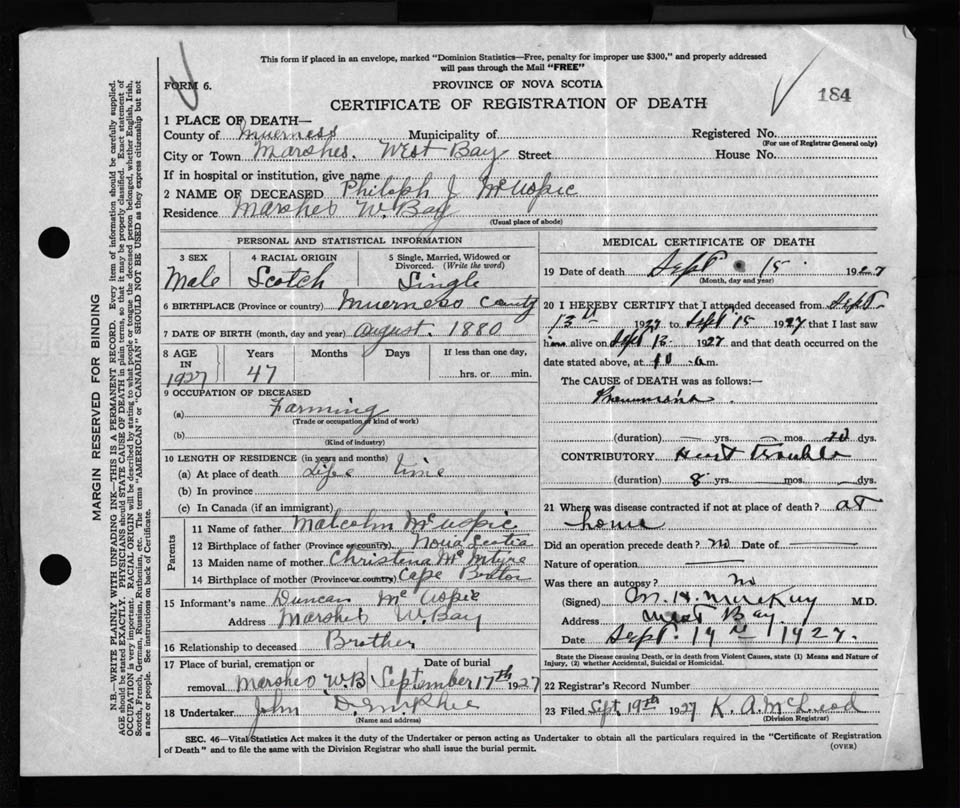 This form if placed in an envelope, marked "Dominion Statistics—Free, penalty for improper use $300," and properly addressed
will pass through the Mail "FREE"
FORM 6.
PROVINCE OF NOVA SCOTIA
184
CERTIFICATE OF REGISTRATION OF DEATH
1 PLACE OF DEATH—
County of Inverness Municipality of Registered No.
(For use of Registrar General only)
City or Town Marshes. West Bay Street House No.
If in hospital or institution, give name
2 NAME OF DECEASED J.
Residence Marshes W. Bay
(Usual place of abode)
PERSONAL AND STATISTICAL INFORMATION
3 SEX 4 RACIAL ORIGIN 5 Single, Married, Widowed or
Divorced. (Write the word)
Male Scotch Single
6 BIRTHPLACE (Province or country) Inverness County
7 DATE OF BIRTH (month, day and year) August. 1880
8 AGE Years Months Days If less than one day,
IN
1927 47 hrs. or min.
9 OCCUPATION OF DECEASED
(a) Farming
(Trade or occupation or kind of work)
(b)
(Kind of industry)
10 LENGTH OF RESIDENCE (in years and months)
(a) At place of death Life time
(b) In province
(c) In Canada (if an immigrant)
Parents
11 Name of father Malcolm
12 Birthplace of father (Province or country) Nova Scotia
13 Maiden name of mother Christina McIntyre
14 Birthplace of mother (Province or country) Cape Breton
15 Informant's name Duncan
Address Marshes W. Bay
16 Relationship to deceased Brother
17 Place of burial, cremation or Date of burial
removal Marshes W.B September 17th 1927
18 Undertaker John D. McPhee
(Name and address)
MEDICAL CERTIFICATE OF DEATH
19 Date of death Sept 15 1927
(Month, day and year)
20 I HEREBY CERTIFY that I attended deceased from Sept
13th 1927 to Sept 15 1927 that I last saw
him alive on Sept 13 1927 and that death occurred on the
date stated above, at 10 a.m.
The CAUSE OF DEATH was as follows:—
Pneumonia
(duration) — yrs. — mos. 10 dys.
CONTRIBUTORY Heart trouble
(duration) 8 yrs. — mos. — dys.
21 Where was disease contracted if not at place of death? at
home
Did an operation precede death? no Date of
Nature of operation
Was there an autopsy? no
(Signed) M. H. McKay M.D.
Address West Bay
Date Sept. 19 1927.
State the Disease causing Death, or in death from Violent Causes, state (1) Means and Nature of
Injury, (2) whether Accidental, Suicidal or Homicidal.
22 Registrar's Record Number
23 Filed Sept 19th 1927 K. A. McLeod
(Division Registrar)
SEC. 46—Vital Statistics Act makes it the duty of the Undertaker or person acting as Undertaker to obtain all the particulars required in the "Certificate of Registration
of Death" and to file the same with the Division Registrar who shall issue the burial permit.
(OVER)
MARGIN RESERVED FOR BINDING
N.B.—WRITE PLAINLY WITH UNFADING INK—THIS IS A PERMANENT RECORD. Every item of information should be carefully supplied.
AGE should be stated EXACTLY. PHYSICIANS should STATE CAUSE OF DEATH in plain terms, so that it may be properly classified. Exact statement of
OCCUPATION is very important. RACIAL ORIGIN will be described by stating to what people or tongue the deceased person belonged, whether English, Irish,
Scotch, French, German, Russian, Ruthenian, etc. The terms "AMERICAN" or "CANADIAN" SHOULD NOT BE USED as they express citizenship but not
a race or people. See instructions on back of Certificate.